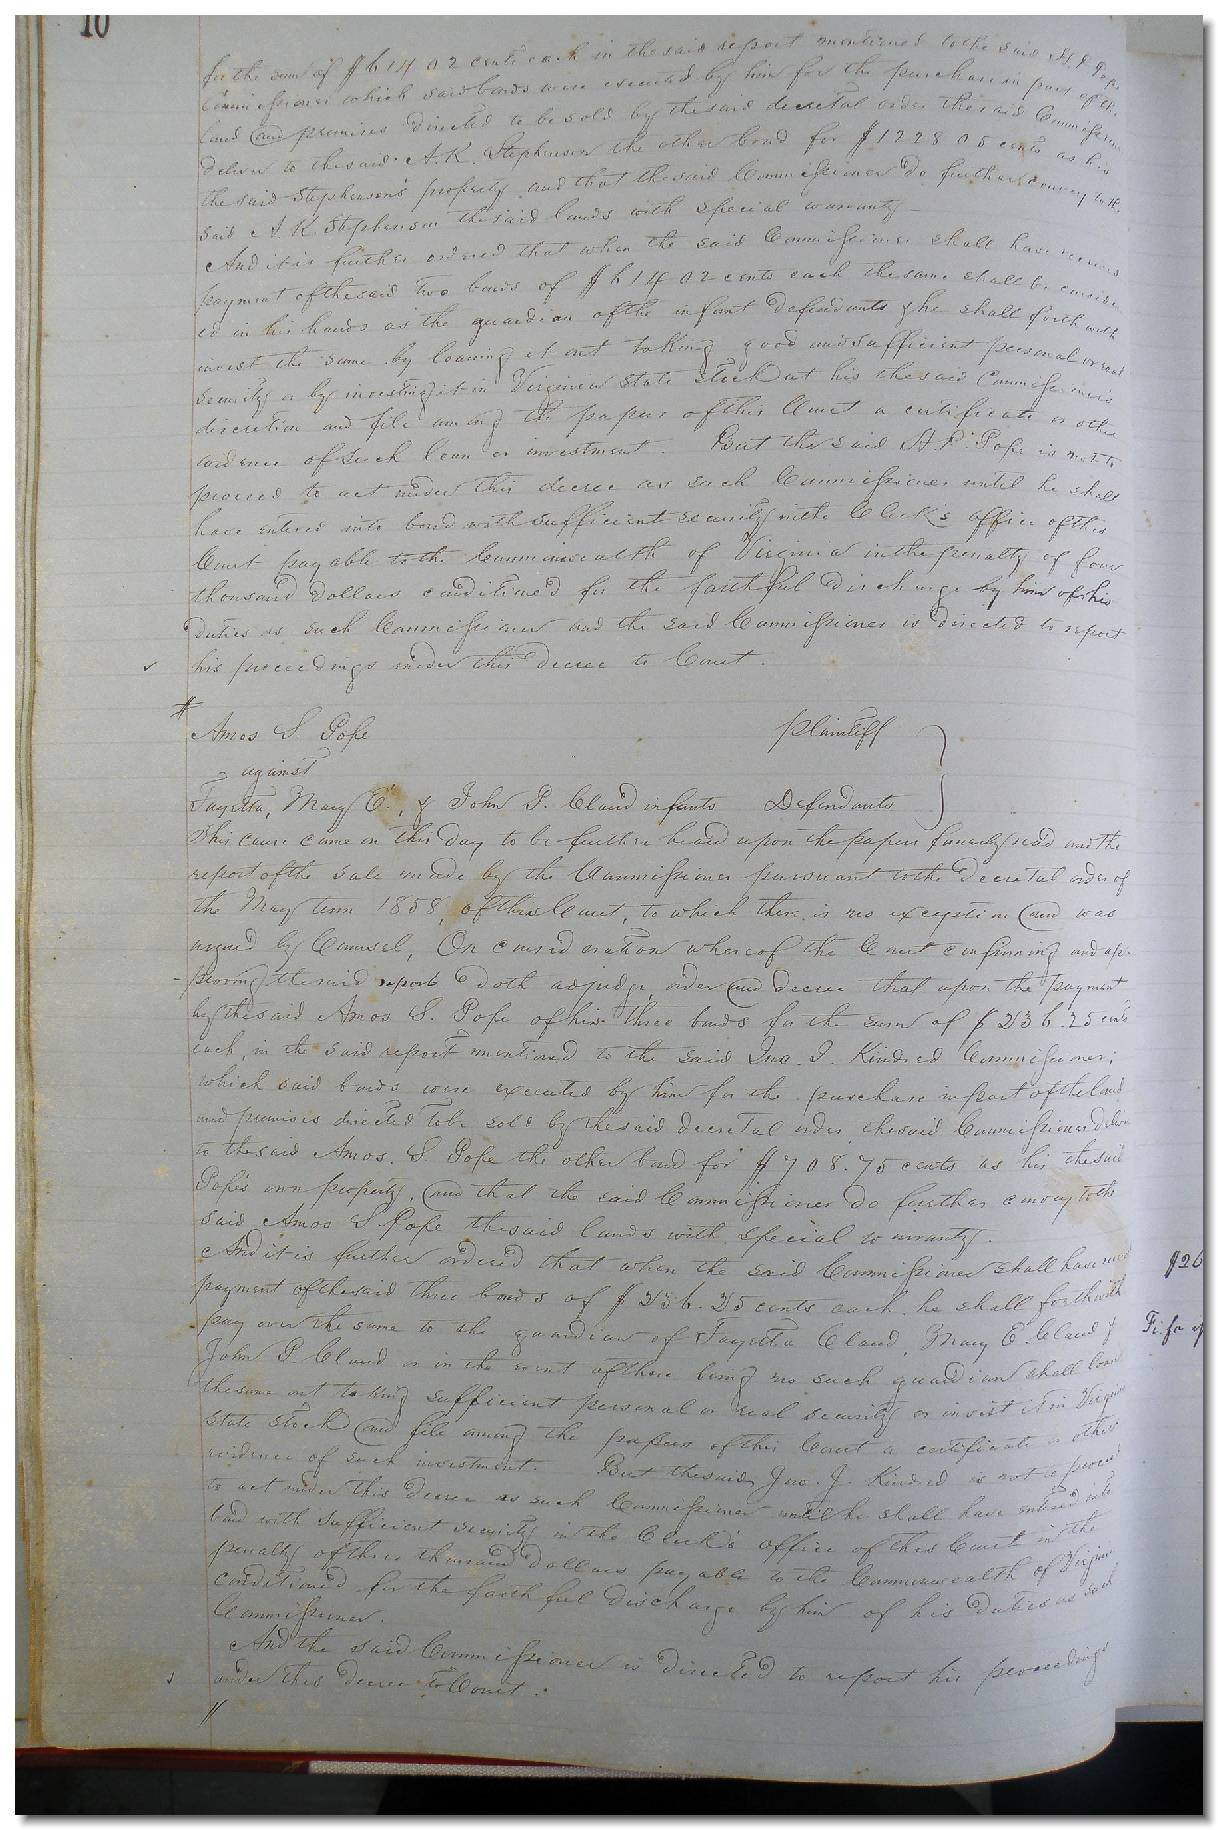 10
for the sum of $614 02 cents each in the said report mentioned to the said A. P. Pope
Commissioner which said bonds were executed by him for the purchase in part of the
land and premises directed to be sold by the said decretal order the said Commissioner
deliver to the said A. K. Stephenson the other bond for $1228 05 cents as his
the said Stephenson's property and that the said Commissioner do further convey to the
said A. K Stephenson the said lands with special warranty
And it is further ordered that when the said Commissioner shall have received
payment of the said two bonds of $614 02 cents each the same shall be consider
ed in his hands as the guardian of the infant defendants & he shall forthwith
invest the same by loaning it out taking good and sufficient personal or real
security or by investing it in Virginia State Stock at his the said Commissioners
discretion and file among the papers of this Court a certificate or other
evidence of such loan or investment. But the said A. P. Pope is not to
proceed to act under this decree as such Commissioner until he shall
have entered into bond with sufficient security in the Clerks office of this
Court payable to the Commonwealth of Virginia in the penalty of four
thousand dollars conditioned for the faithful discharge by him of his
duties as such Commissioner and the said Commissioner is directed to report
his proceedings under this decree to Court.
Amos S. Pope Plaintiff
against
Fayetta, Mary E. & John P. Claud infants Defendants
This cause came on this day to be further heard upon the papers formerly read and the
report of the sale made by the Commissioner pursuant to the decretal order of
the May term 1858, of this Court, to which there is no exception and was
argued by Counsel, On consideration whereof the Court confirming and ap-
-proving the said report doth adjudge, order and decree that upon the payment
by the said Amos S. Pope of his three bonds for the sum of $236.25 cents
each, in the said report mentioned to the said Jno. J. Kindred Commissioner;
which said bonds were executed by him for the purchase in part of the land
and premises directed to be sold by the said decretal order, the said Commissioner deliver
to the said Amos. S. Pope the other bond for $708.75 cents as his the said
Pope's own property, and that the said Commissioner do further convey to the
said Amos S Pope the said lands with special warranty.
And it is further ordered that when the said Commissioner shall have received
payment of the said three bonds of $236.25 cents each he shall forthwith
pay over the same to the guardian of Fayetta Claud, Mary E. Claud &
John P. Claud or in the event of there being no such guardian shall loan
the same out taking sufficient personal or real security or invest it in Virginia
State stock and file among the papers of this Court a certificate or other
evidence of such investment. But the said Jno. J. Kindred is not to proceed
to act under this decree as such Commissioner until he shall have entered into
bond with sufficient security in the Clerk's office of this Court in the
penalty of three thousand dollars payable to the Commonwealth of Virginia
conditioned for the faithful discharge by him of his duties as such
Commissioner.
And the said Commissioner is directed to report his proceedings
under this decree to Court.
$26
Fi. fa